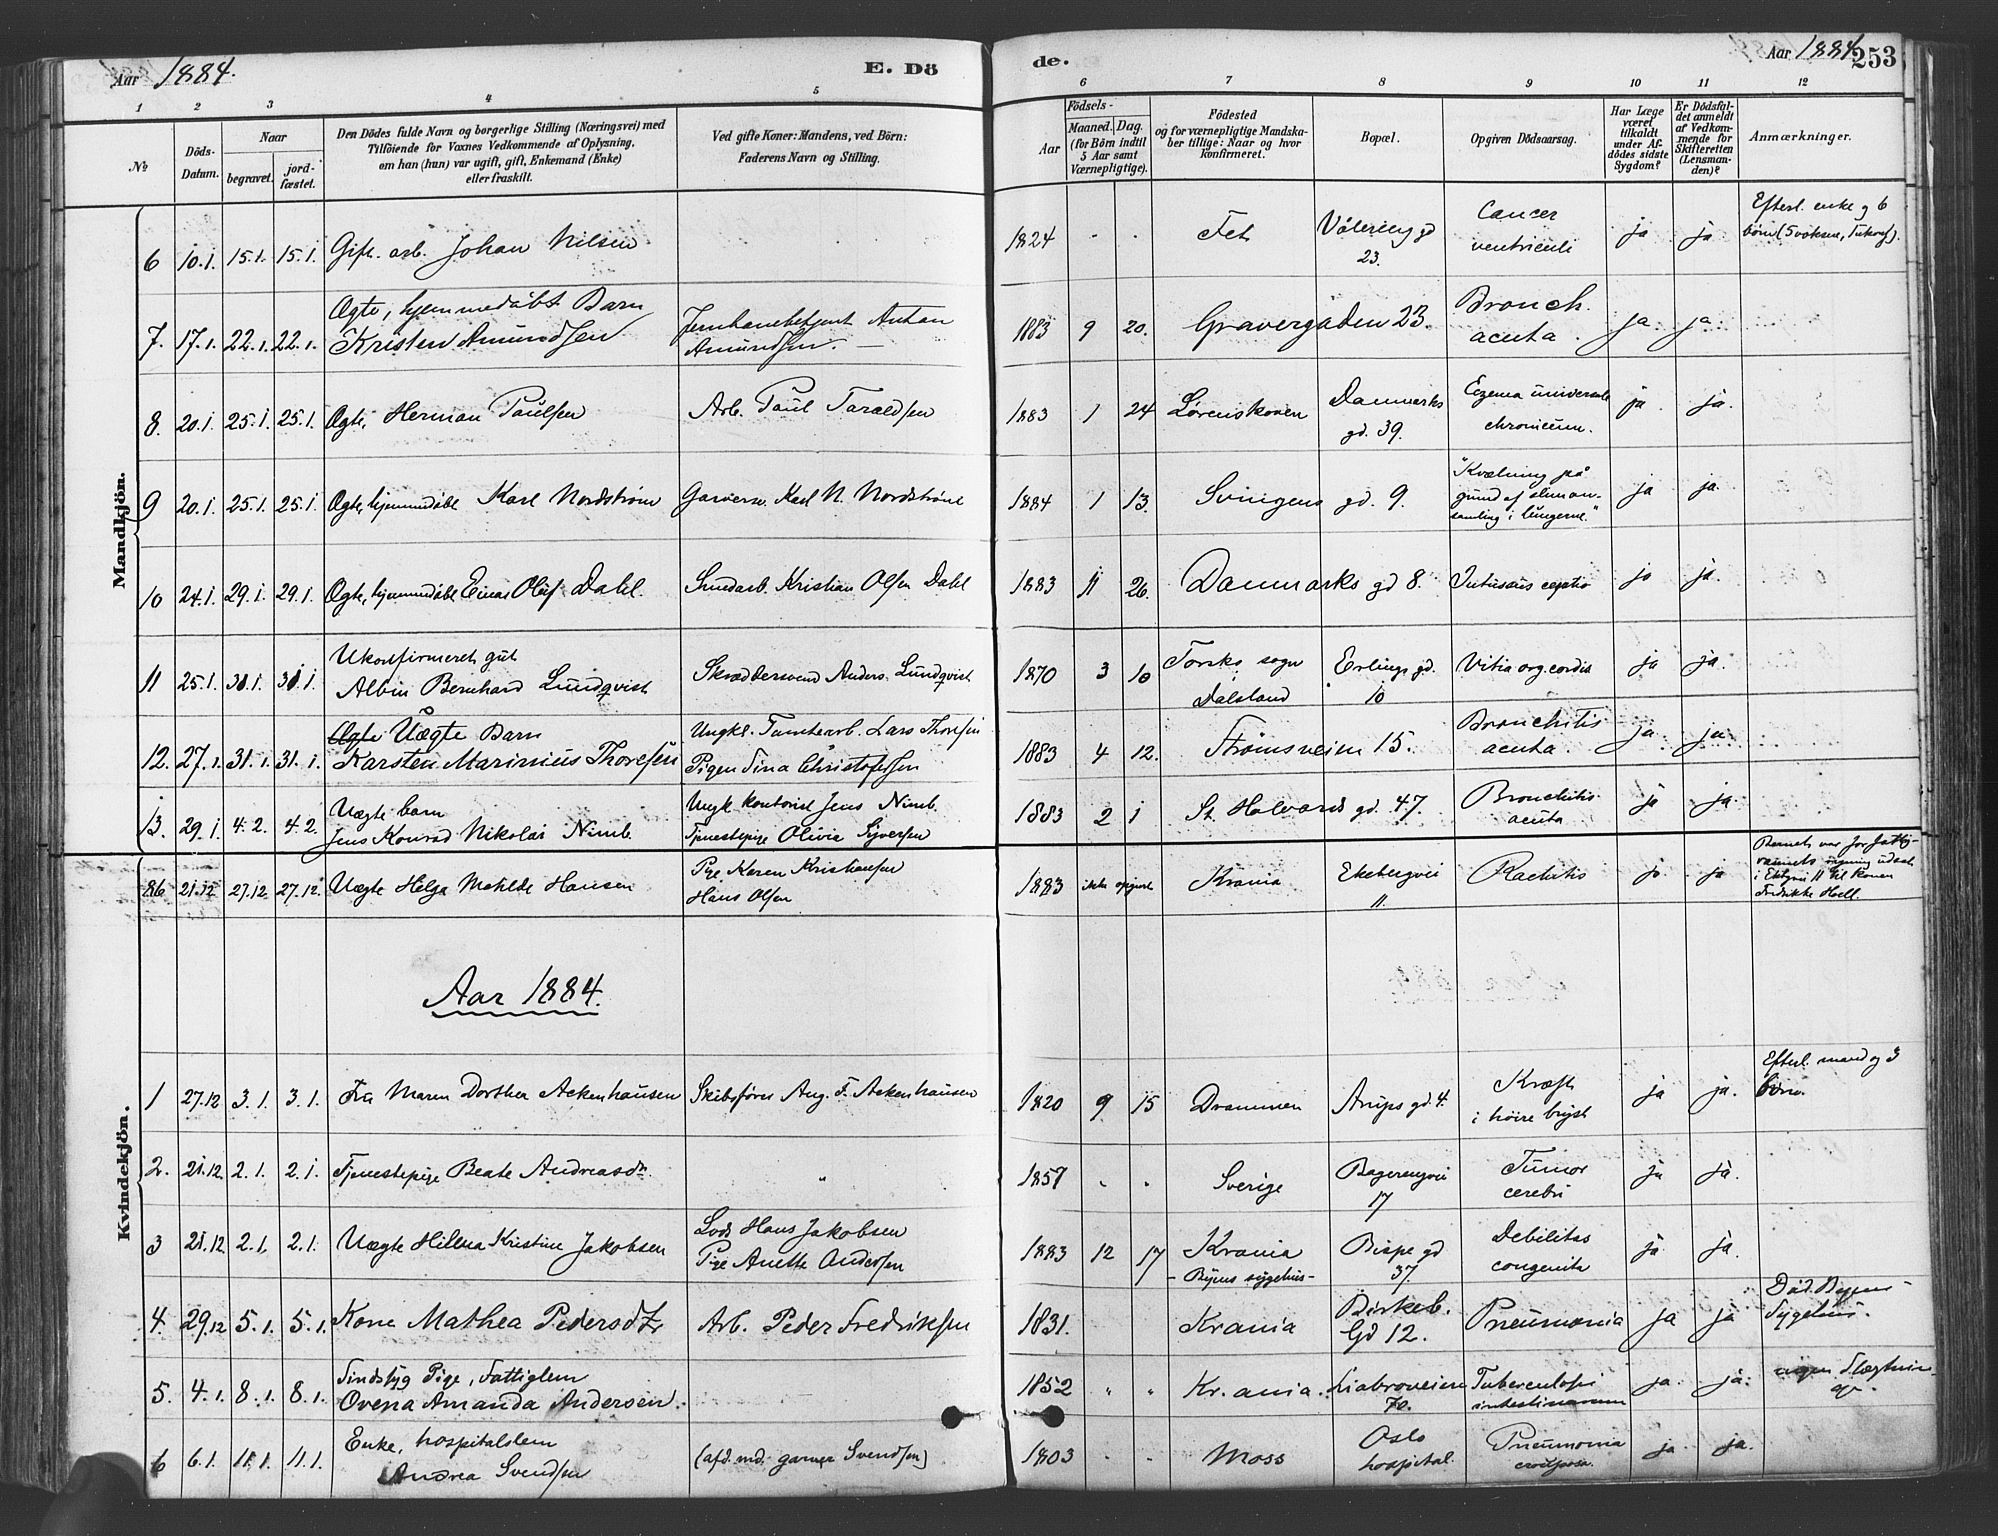 Aar 1884.
E. Dö
de.
Aar 1884
253
1 2 3 4 5 6 7 8 9 10 11 12
No
Döds-Datum.
Naar
begravet.
jord-fæstet.
Den Dödes fulde Navn og borgerlige Stilling (Næringsvei) med
Tilföiende for Voxnes Vedkommende af Oplysning,
om han (hun) var ugift, gift, Enkemand (Enke)
eller fraskilt.
Ved gifte Koner: Mandens, ved Börn:
Faderens Navn og Stilling.
Födsels-
Aar
Maaned.
Dag.
(for Börn indtil
5 Aar samt
Værnepligtige).
Födested
og for værnepligtige Mandska-
ber tillige: Naar og hvor
konfirmeret.
Bopæl.
Opgiven Dödsaarsag.
Har Læge
været
tilkaldt
under Af-
dödes sidste
Sygdom?
Er Dödsfal-
det anmeldt
af Vedkom-
mende for
Skifteretten
(Lensman-
den)?
Anmærkninger.
Mandkjön.
6 10.1. 15.1. 15.1. Gift. arb. Johan Nilsen 1824 . . Fet Vålereng gd 23. Cancer ventriculi ja ja Efterl. enke og 6 børn (5 voksne,
7. 17.1. 22.1. 22.1. Ægte, hjemmedøbt Barn
Kristen Amundsen Jernbanebetjent Anton Amundsen. 1883 9 20. Gravergaden 23. Bronch. acuta. ja ja
8. 20.1. 25.1. 25.1. Ægte, Herman Paulsen Arb. Paul Taraldsen 1883 1 24 Lørenskoven Danmarks gd. 39. Eczema universale chronicum. ja ja.
9 20.1. 25.1. 25.1. Ægte, hjemmedøbt Karl Nordstrøm Garversv. Karl N. Nordstrøm 1884 1 13. Svingens gd. 9. "Kvælning på grund af slim an-
samling i lungerne." ja ja
10 24.1. 29.1. 29.1. Ægte, hjemmedøbt Einar Olaf Dahl. Smedarb. Kristian Olsen Dahl 1883 11 26. Danmarks gd 8. Intussusceptio ja ja.
11 25.1. 31.1. 31.1. Ukonfirmeret gut
Albin Bernhard Lundqvist Skræddersvend Anders Lundqvist 1870 3 10 Torsko sogn Dalsland Erlings gd. 10 Vitia org. cordis ja ja.
12. 27.1. 31.1. 31.1. Ægte Uægte Barn
Karsten Marinius Thoresen Ungkl. Tomtearb. Lars Thoresen
Pigen Lina Christofersen 1883 4 12. Strømsveien 15. Bronchitis acuta. ja. ja.
13. 29.1. 4.2. 4.2. Uægte barn
Jens Konrad Nikolai Nimb. Ungk. kontorist Jens Nimb.
Tjenestepige Olivia Syversen 1883 2 1 St. Halvards gd. 47. Bronchitis acuta ja ja.
86 21.12 27.12 27.12. Uægte Helga Matilde Hansen Pige Karen Kristiansen
Hans Olsen 1883 ikke opgivet Krania Ekebergvei 11. Rachitis ja. ja Barnet var for fattig-
væsnets regning udsat
i Ekbgvei 11 til konen
Fredrikke Hoell.
Aar 1884.
Kvindekjön.
1 27.12 3.1. 3.1. Fru Maren Dorthea Ackenhausen Skibsfører Aug. F. Ackenhausen 1820 9 15 Drammen Arups gd. 4. Kræft i høire bryst ja ja. Efterl. mand og 3 børn.
2. 21.12. 2.1. 2.1. Tjenestepige Beate Andreasdr. " 1857 . . Sverige Bagerengvei 17 Tumor cerebri ja ja.
3 21.12. 2.1. 2.1. Uægte Hilma Kristine Jakobsen Lods Hans Jakobsen
Pige Anette Andersen 1883 12 17 Krania
- Byens sygehus - Bispe gd 37 Debilitas congenita ja ja.
4. 29.12 5.1. 5.1. Kone Mathea Pedersdtr Arb. Peder Fredriksen 1831. Krania Birkeb. Gd 12. Pneumonia ja ja Død. Byens Sygehus.
5. 4.1. 8.1. 8.1. Sindssyg Pige, Fattiglem
Ovena Amanda Andersen. 1852 " " Kr.ania. Liabroveien 70. Tuberculosis intestinorum ja. ja. ingen
6 6.1. 11.1. 11.1. Enke, hospitalslem
Andrea Svendsen (afd. md. garver Svendsen) 1803 . . Moss Oslo hospital. Pneumonia crouposa. ja. ja.